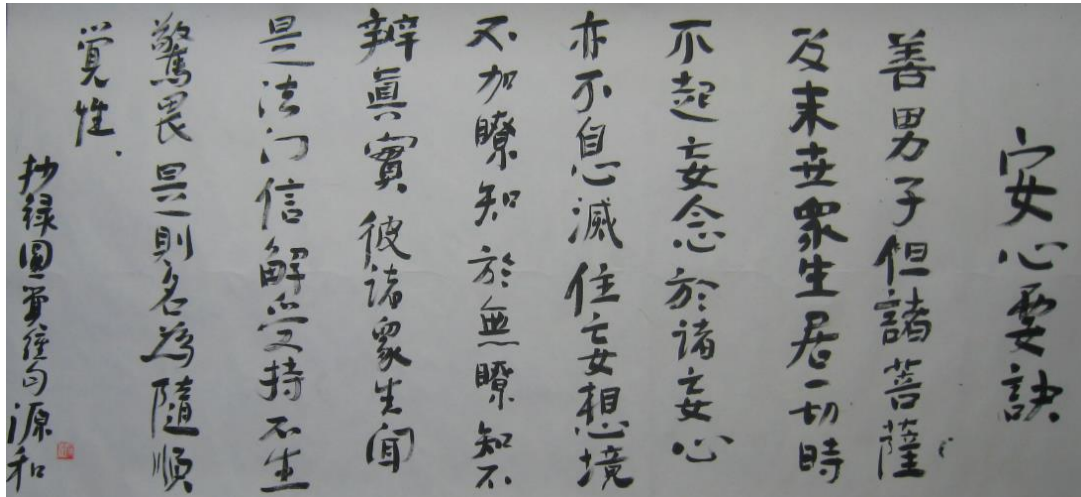 安心要訣
善男子但諸菩薩
及末世眾生居一切時
不起妄念於諸妄心
亦不息滅住妄想境
不加瞭知於無瞭知不
辨真實彼諸眾生聞
是法门信解受持不生
驚畏是則名為隨順
覺性、
抄録圓覺經句源和